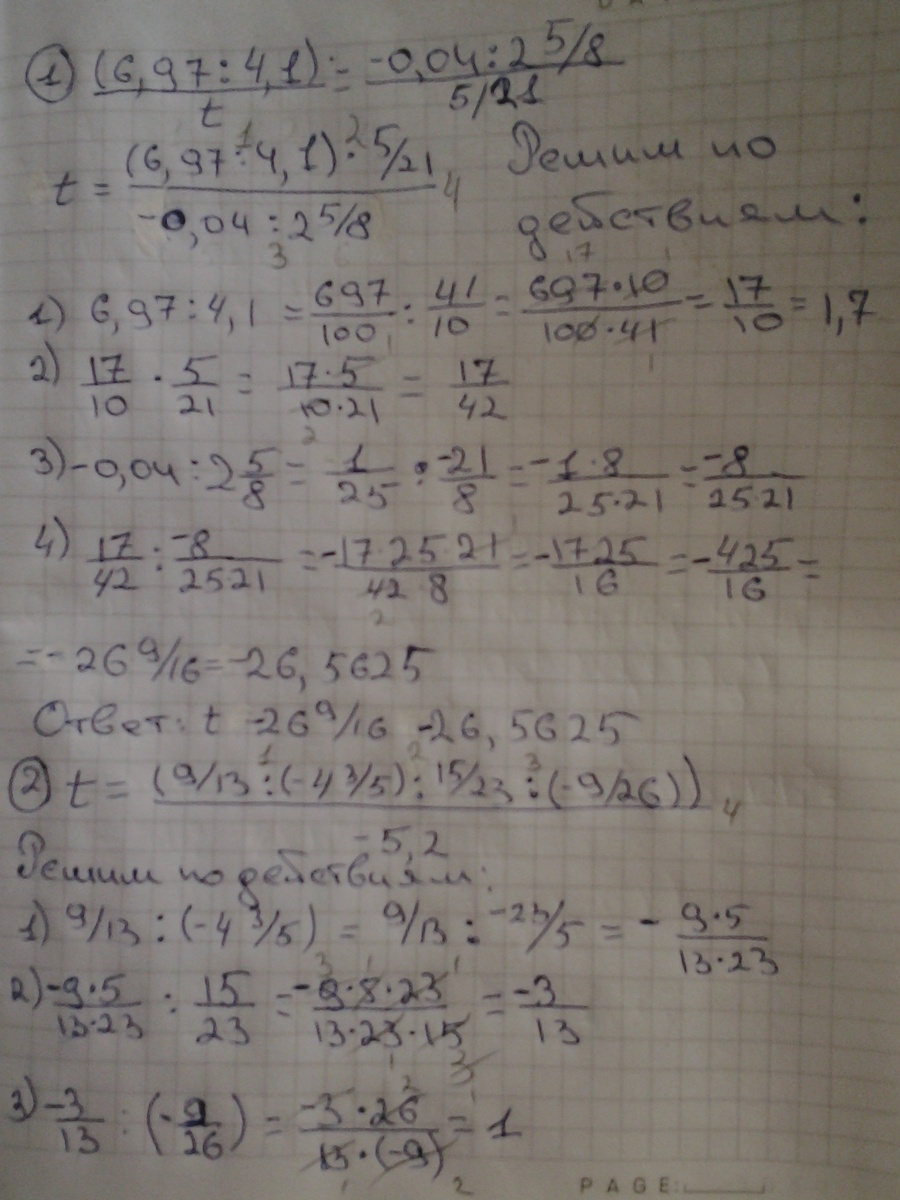 ① (6,97:4,1)/t = -0,04:2 5/8 / 5/21
t = (6,97:4,1)·5/21 / -0,04:2 5/8 Решим по
действиям:
1) 6,97:4,1 = 697/100 : 41/10 = 697·10/100·41 = 17/10 = 1,7
2) 17/10 · 5/21 = 17·5/10·21 = 17/42
3) -0,04:2 5/8 = 1/25 : -21/8 = -1·8/25·21 = -8/25·21
4) 17/42 : -8/25 21 = -17 25 21/42 8 = -17 25/16 = -425/16 =
= -26 9/16 = -26,5625
Ответ: t -26 9/16 -26,5625
② t = (9/13 : (-4 3/5) : 15/23 : (-9/26)) / -5,2
Решим по действиям:
1) 9/13 : (-4 3/5) = 9/13 : -23/5 = - 9·5/13·23
2) -9·5/13·23 : 15/23 = -9·5·23/13·23·15 = -3/13
3) -3/13 : (-9/26) = -3·26/13·(-9) = 1
PAGE: